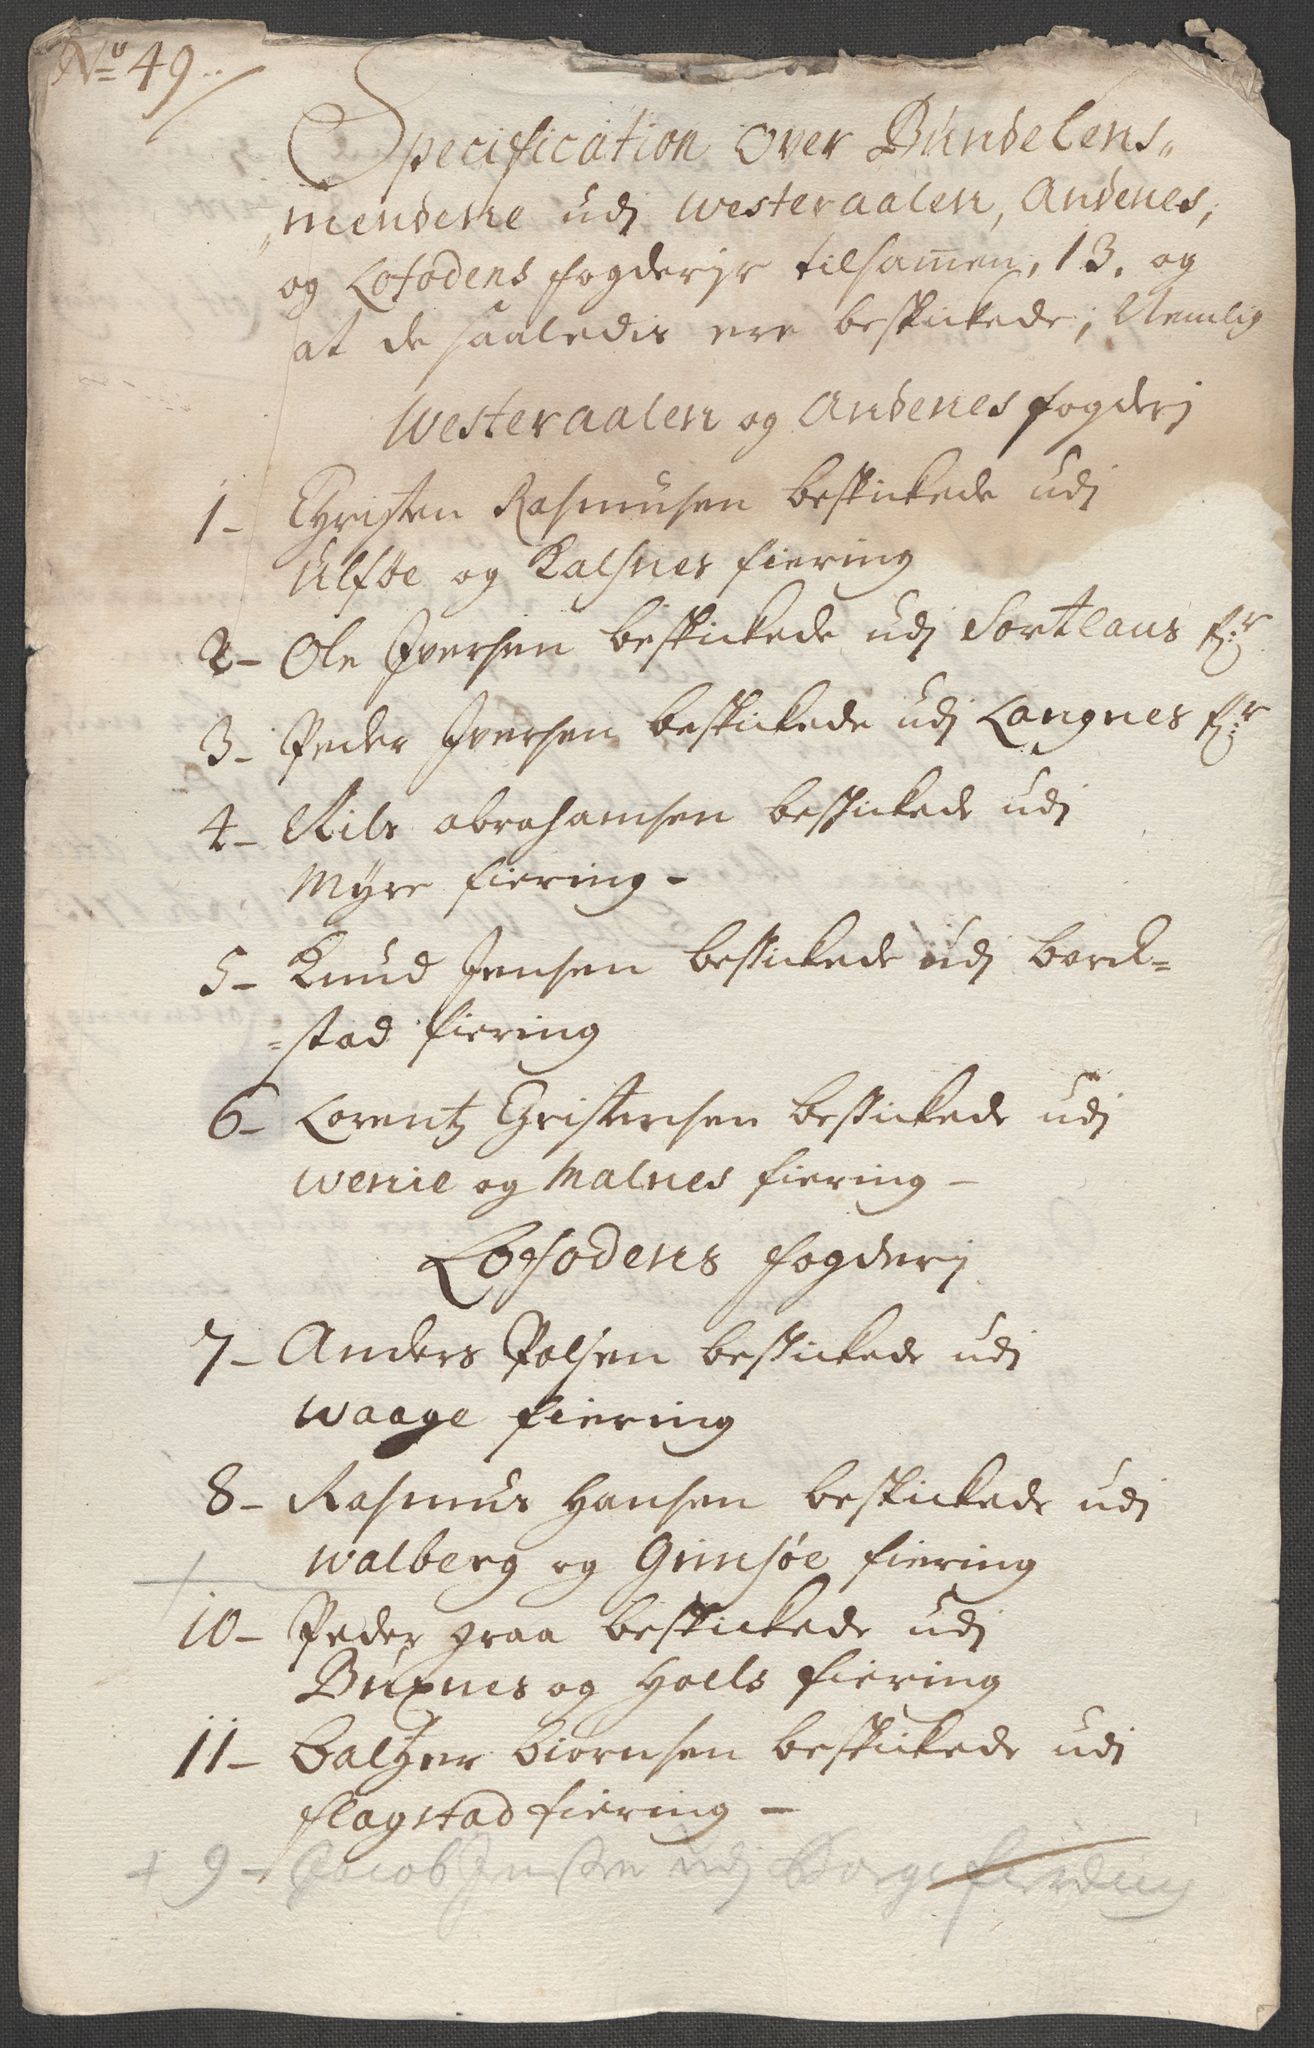 No 49
Specification Over Bundelens
mendene udj westeraalen, Andenes,
og Lofodens fogderjr tilsamen, 13. og
at de saaledis ere beskickede, Nemlig
Westeraalen og Andenes fogderj
1- Christen Rasmusen beskickede udj
Ulföe og Kalsnes fiering
2- Ole Iversen beskickede udj Sortlans f:r
3- Peder Iversen beskickede udj Langnes f:r
4- Nils abrahamsen beskickede udj
Myre fiering -
5- Knud Jensen beskickede udj bord=
=stad fiering
6- Lorentz Christensen beskickede udj
wenie og Malnes fiering -
Lofodens fogderj
7- Anders Polsen beskickede udj
waage fiering
8- Rasmus Hansen beskickede udj
walberg og Gimsöe fiering
+
10- Peder graa beskickede udj
Buxnes og Hoels fiering
11- baltzer biornsen beskickede udj
flagstad fiering -
+ 9- Jacob Jensen udj Borge fierding